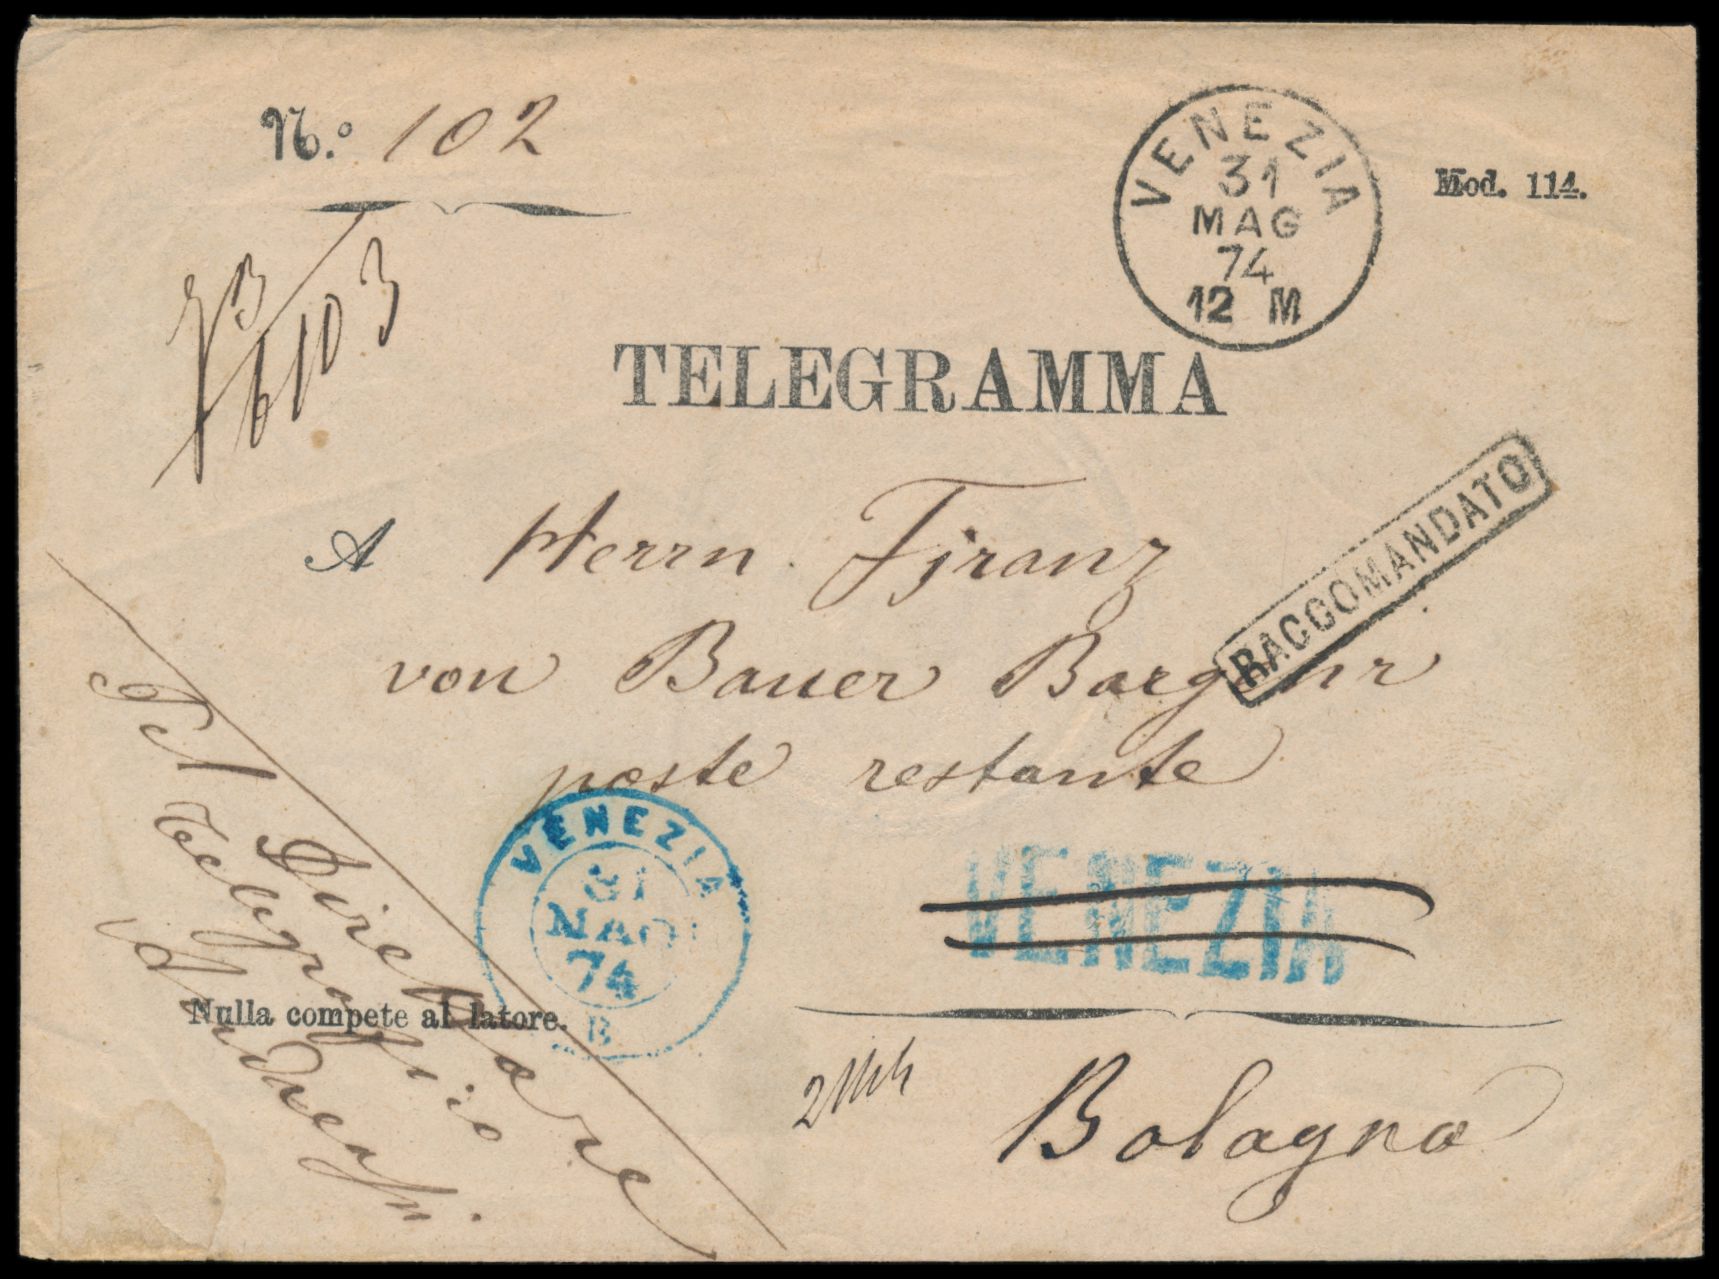 N.º 102
VENEZIA
31
MAG
74
12 M
Mod. 114.
6103
TELEGRAMMA
RACCOMANDATO
A Herrn Franz
von Bauer Bargehr
poste restante
VENEZIA
31
MAG
74
B
VENEZIA
Nulla compete al latore.
Bologna
Il Direttore
Telegrafico